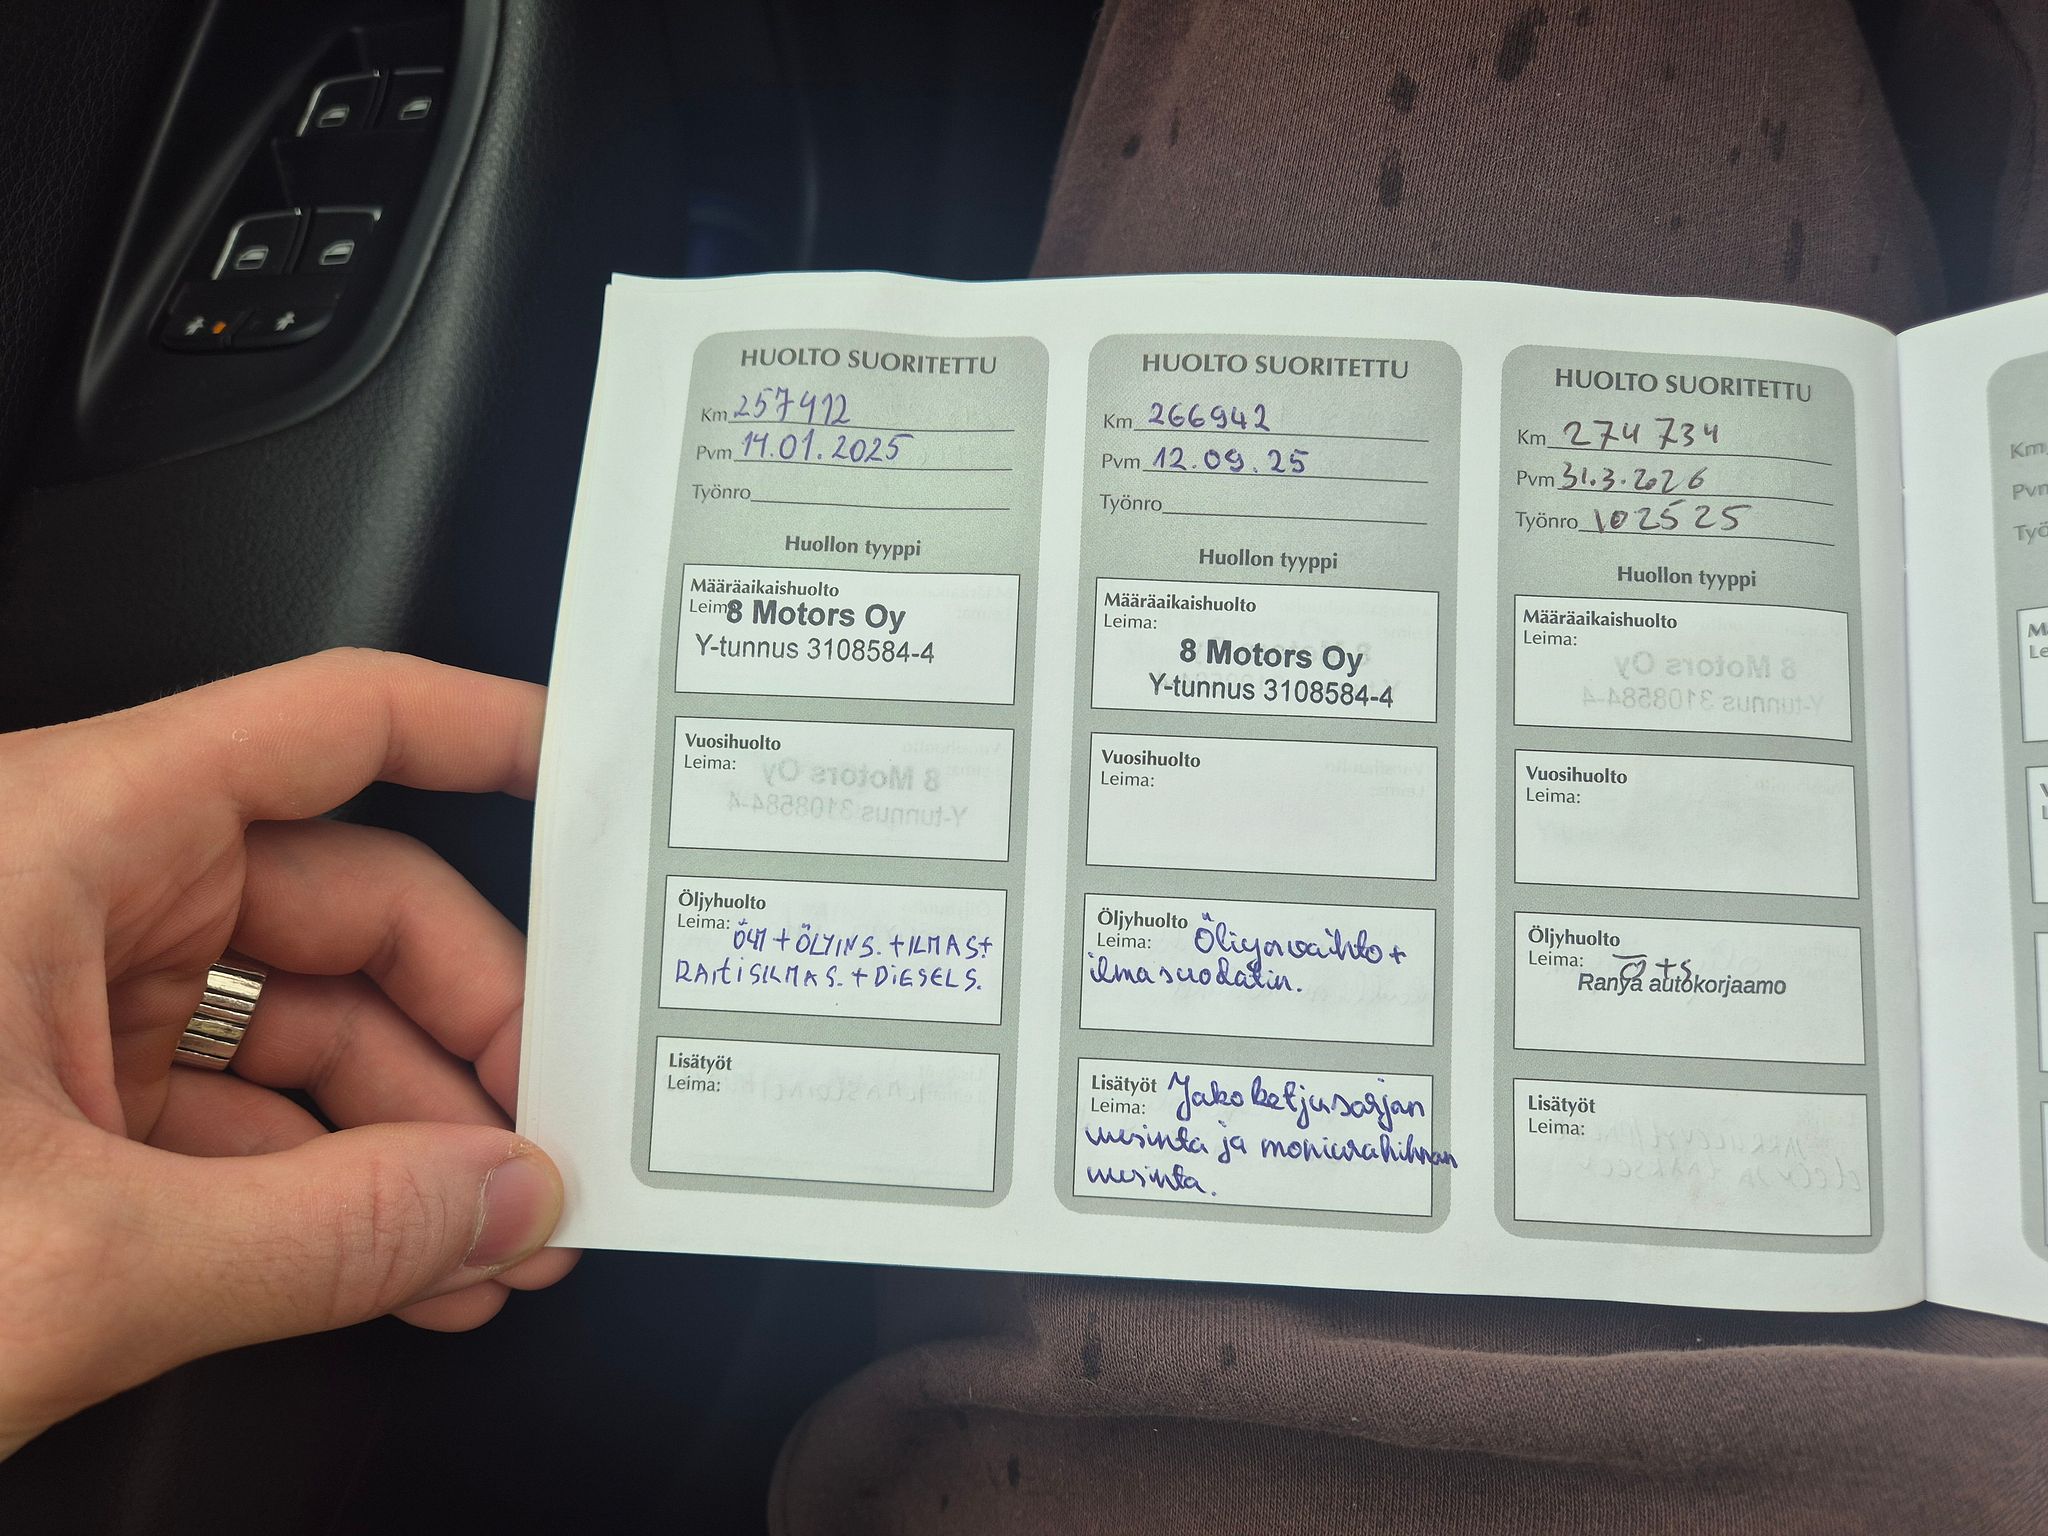 HUOLTO SUORITETTU
Km 257412
Pvm 14.01.2025
Työnro
Huollon tyyppi
Määräaikaishuolto
Leim
8 Motors Oy
Y-tunnus 3108584-4
Vuosihuolto
Leima:
Öljyhuolto
Leima: ÖLJY + ÖLJYINS. + ILMAS+
RAITISILMAS. + DIESELS.
Lisätyöt
Leima:
HUOLTO SUORITETTU
Km 266942
Pvm 12.09.25
Työnro
Huollon tyyppi
Määräaikaishuolto
Leima:
8 Motors Oy
Y-tunnus 3108584-4
Vuosihuolto
Leima:
Öljyhuolto Öljynvaihto +
Leima:
ilmasuodatin.
Lisätyöt Jakoketjusarjan
Leima:
uusinta ja moniurahihnan
uusinta.
HUOLTO SUORITETTU
Km 274 734
Pvm 31.3.2026
Työnro 102525
Huollon tyyppi
Määräaikaishuolto
Leima:
Vuosihuolto
Leima:
Öljyhuolto
Leima: Ö+S
Ranya autokorjaamo
Lisätyöt
Leima:
Km
Pvm